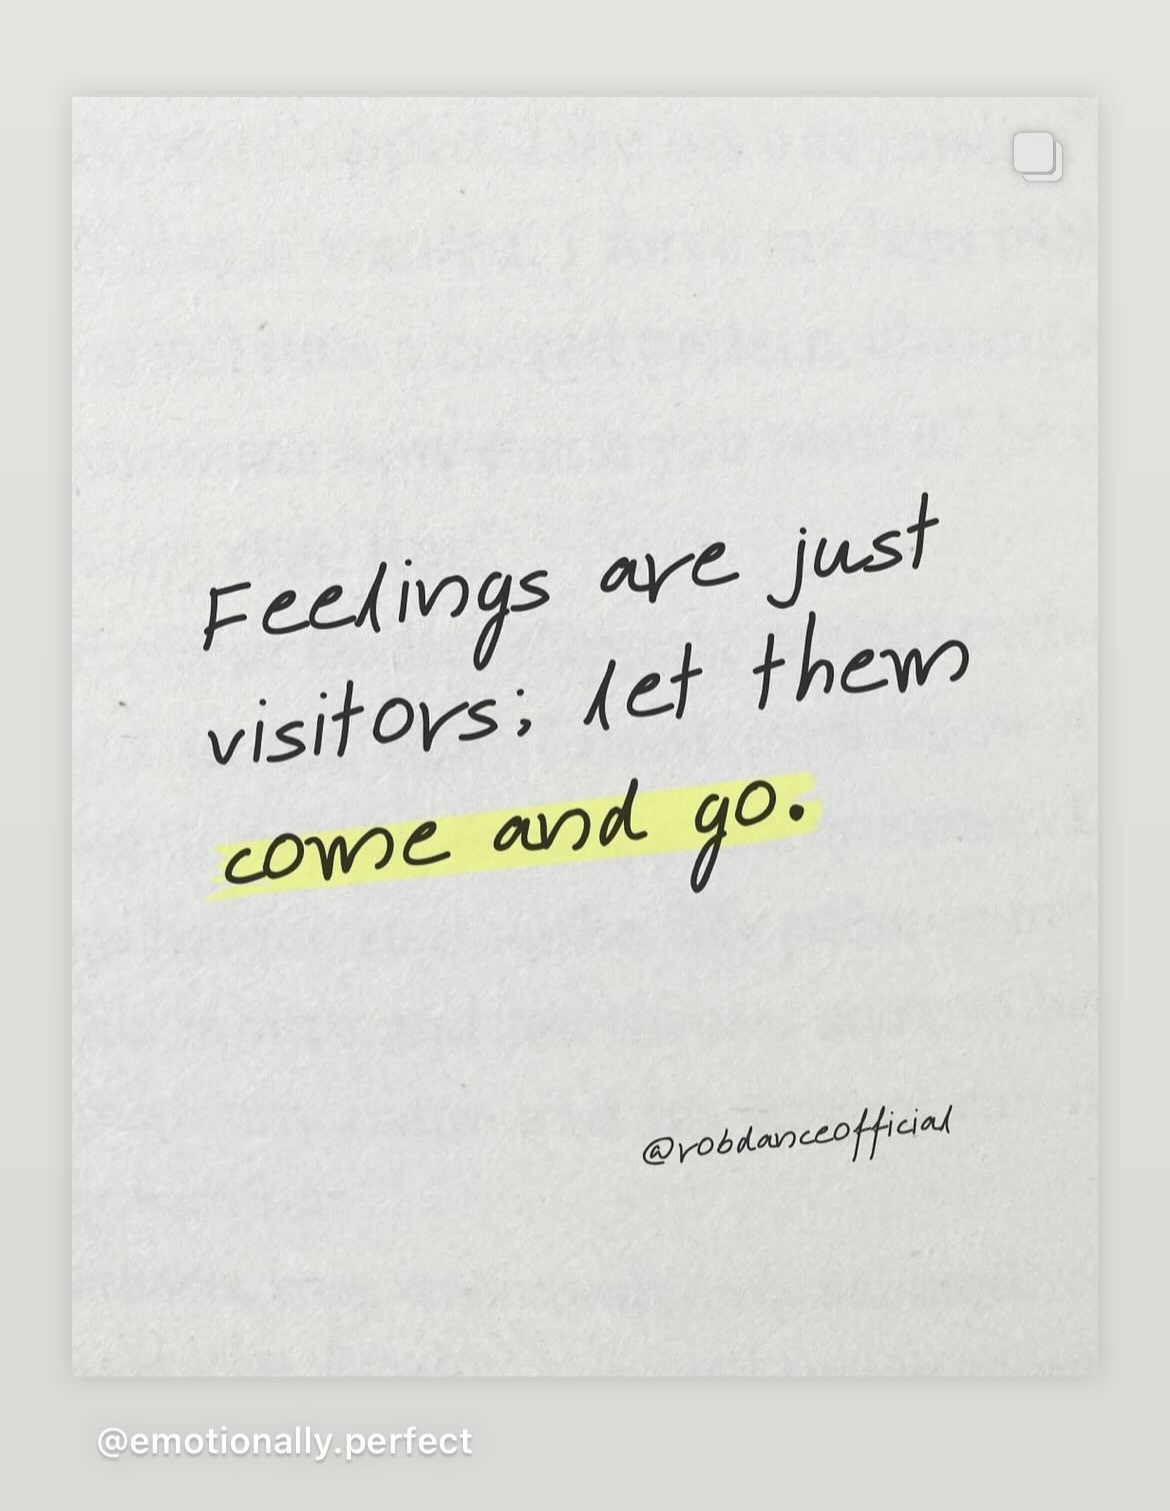 Feelings are just
visitors; let them
come and go.
@robdanceofficial
@emotionally.perfect